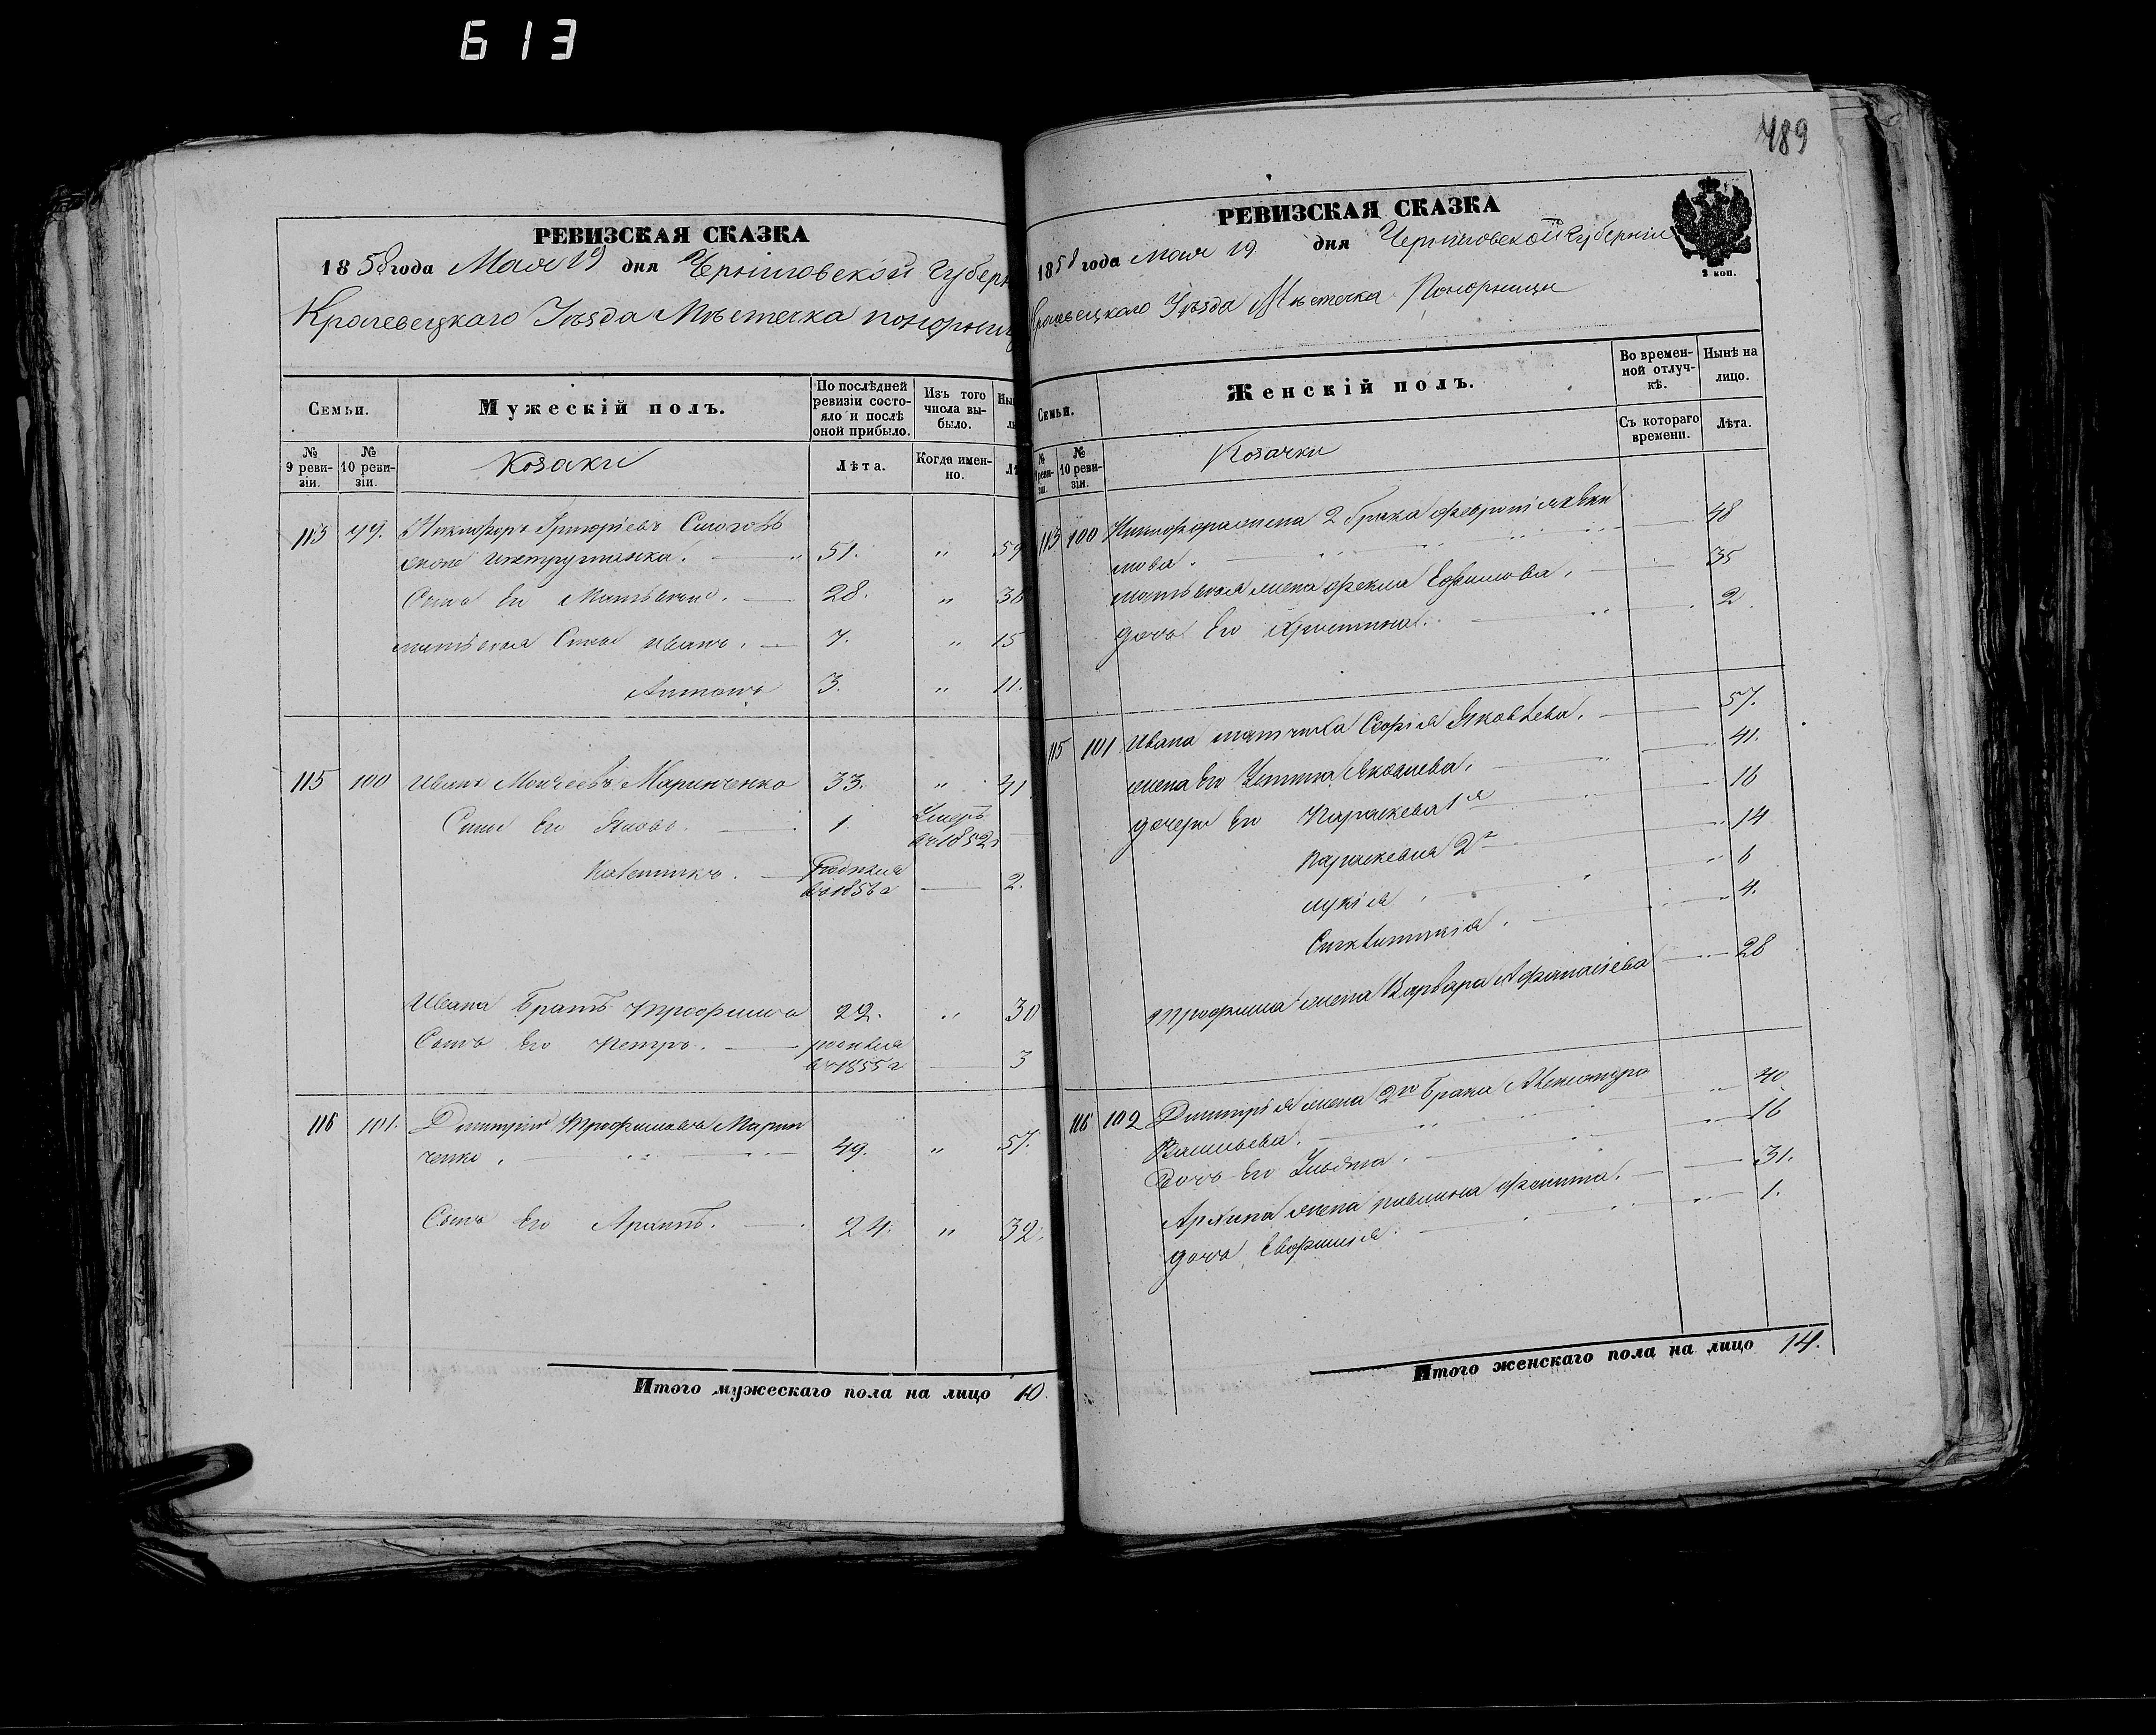 613
РЕВИЗСКАЯ СКАЗКА
1858 года Мая 19 дня Черниговской Губерн
Кролевецкаго Уѣзда Мѣстечка понорниц
Семьи.
Мужескій полъ.
По послѣдней ревизіи состояло и послѣ оной прибыло.
Изъ того числа выбыло.
Ны
№ 9 ревизіи.
№ 10 ревизіи.
Козаки
Лѣта.
Когда именно.
Лѣ
113 99. Никифоръ Григорьевъ
51. " 59
Сынъ Ег Матвѣй. 28. " 36
Матвѣя Сыны иванъ. 7. " 15
Антонъ 3. " 11.
115 100 Иванъ Моисеевъ Маринченко 33. " 41
Сынъ Ег Яковъ. 1. Умеръ въ 1852
Родился въ 1856 г 2.
Ивана братъ трофимъ 22. " 30
Сынъ Его Петръ. родился въ 1855 г 3
116 101. Дмитрій Трофимовъ Марин
ченко. 49. " 57.
Сынъ Его Архипъ. 24. " 32.
Итого мужескаго пола на лицо 10.
489
РЕВИЗСКАЯ СКАЗКА
1858 года мая 19 дня Черниговской Губерніи
2 коп.
Кролевецкаго Уѣзда Мѣстечка Понорницы
Семьи.
Женскій полъ.
Во временной отлучкѣ.
Нынѣ на лицо.
№ 9 ревизіи.
№ 10 ревизіи.
Козачки
Съ котораго времени.
Лѣта.
113 100 Никифора жена 2 брака феврония
48
матвѣя жена фекла Ефимова. 35
дочь Его Христина. 2.
115 101 Ивана мачиха Софія Яковлева. 57.
жена Его Яковлева. 41.
дочери Его Параскева 1я 16
Параскева 2я 14
лукія 6
Синклитикія. 4.
трофима жена Варвара Афанасіева 28
116 102 Дмитрія жена 2го брака Александра
Васильева. 40
Дочь Его Ульяна. 16
Архипа жена 31.
дочь Евфимія. 1.
Итого женскаго пола на лицо 14.